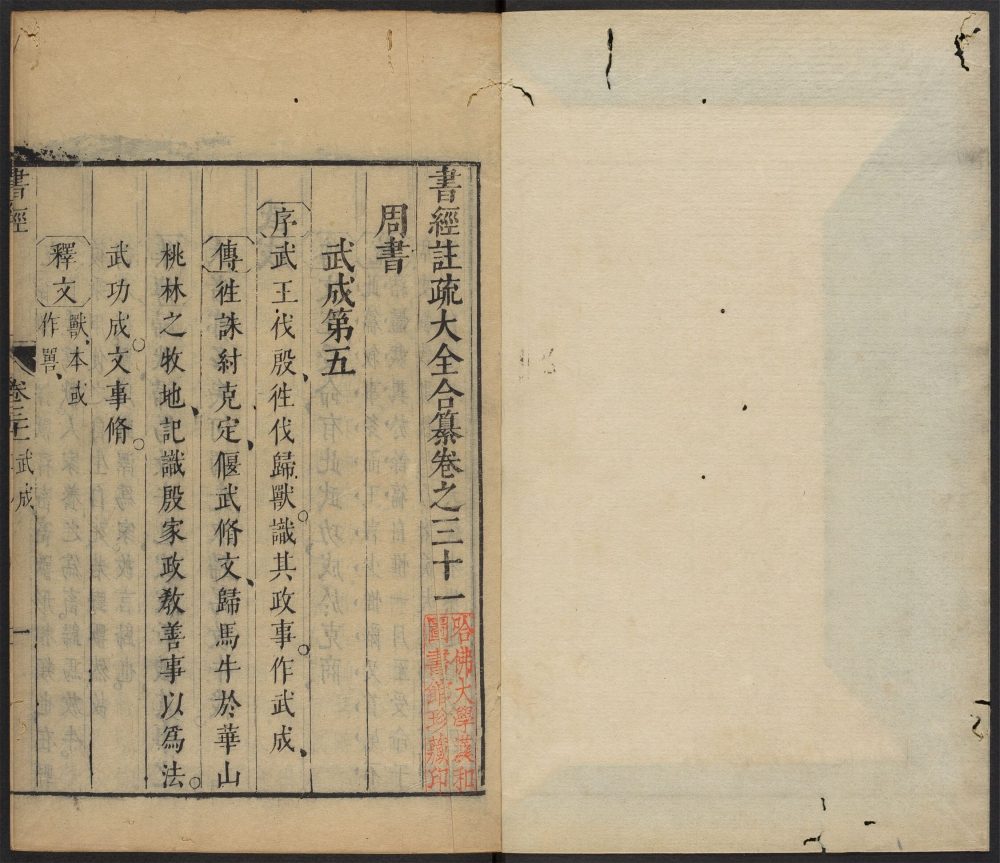 書經註疏大全合纂卷之三十一
哈佛大學漢和
圖書館珍藏印
周書
武成第五
序武王伐殷、徃伐歸獸。識其政事。作武成、
傳徃誅紂克定、偃武脩文、歸馬牛於華山
桃林之牧地、記識殷家政教善事以爲法。
武功成。文事脩。
釋文獸、本或
作嘼、
書經
卷三十一 武成
一